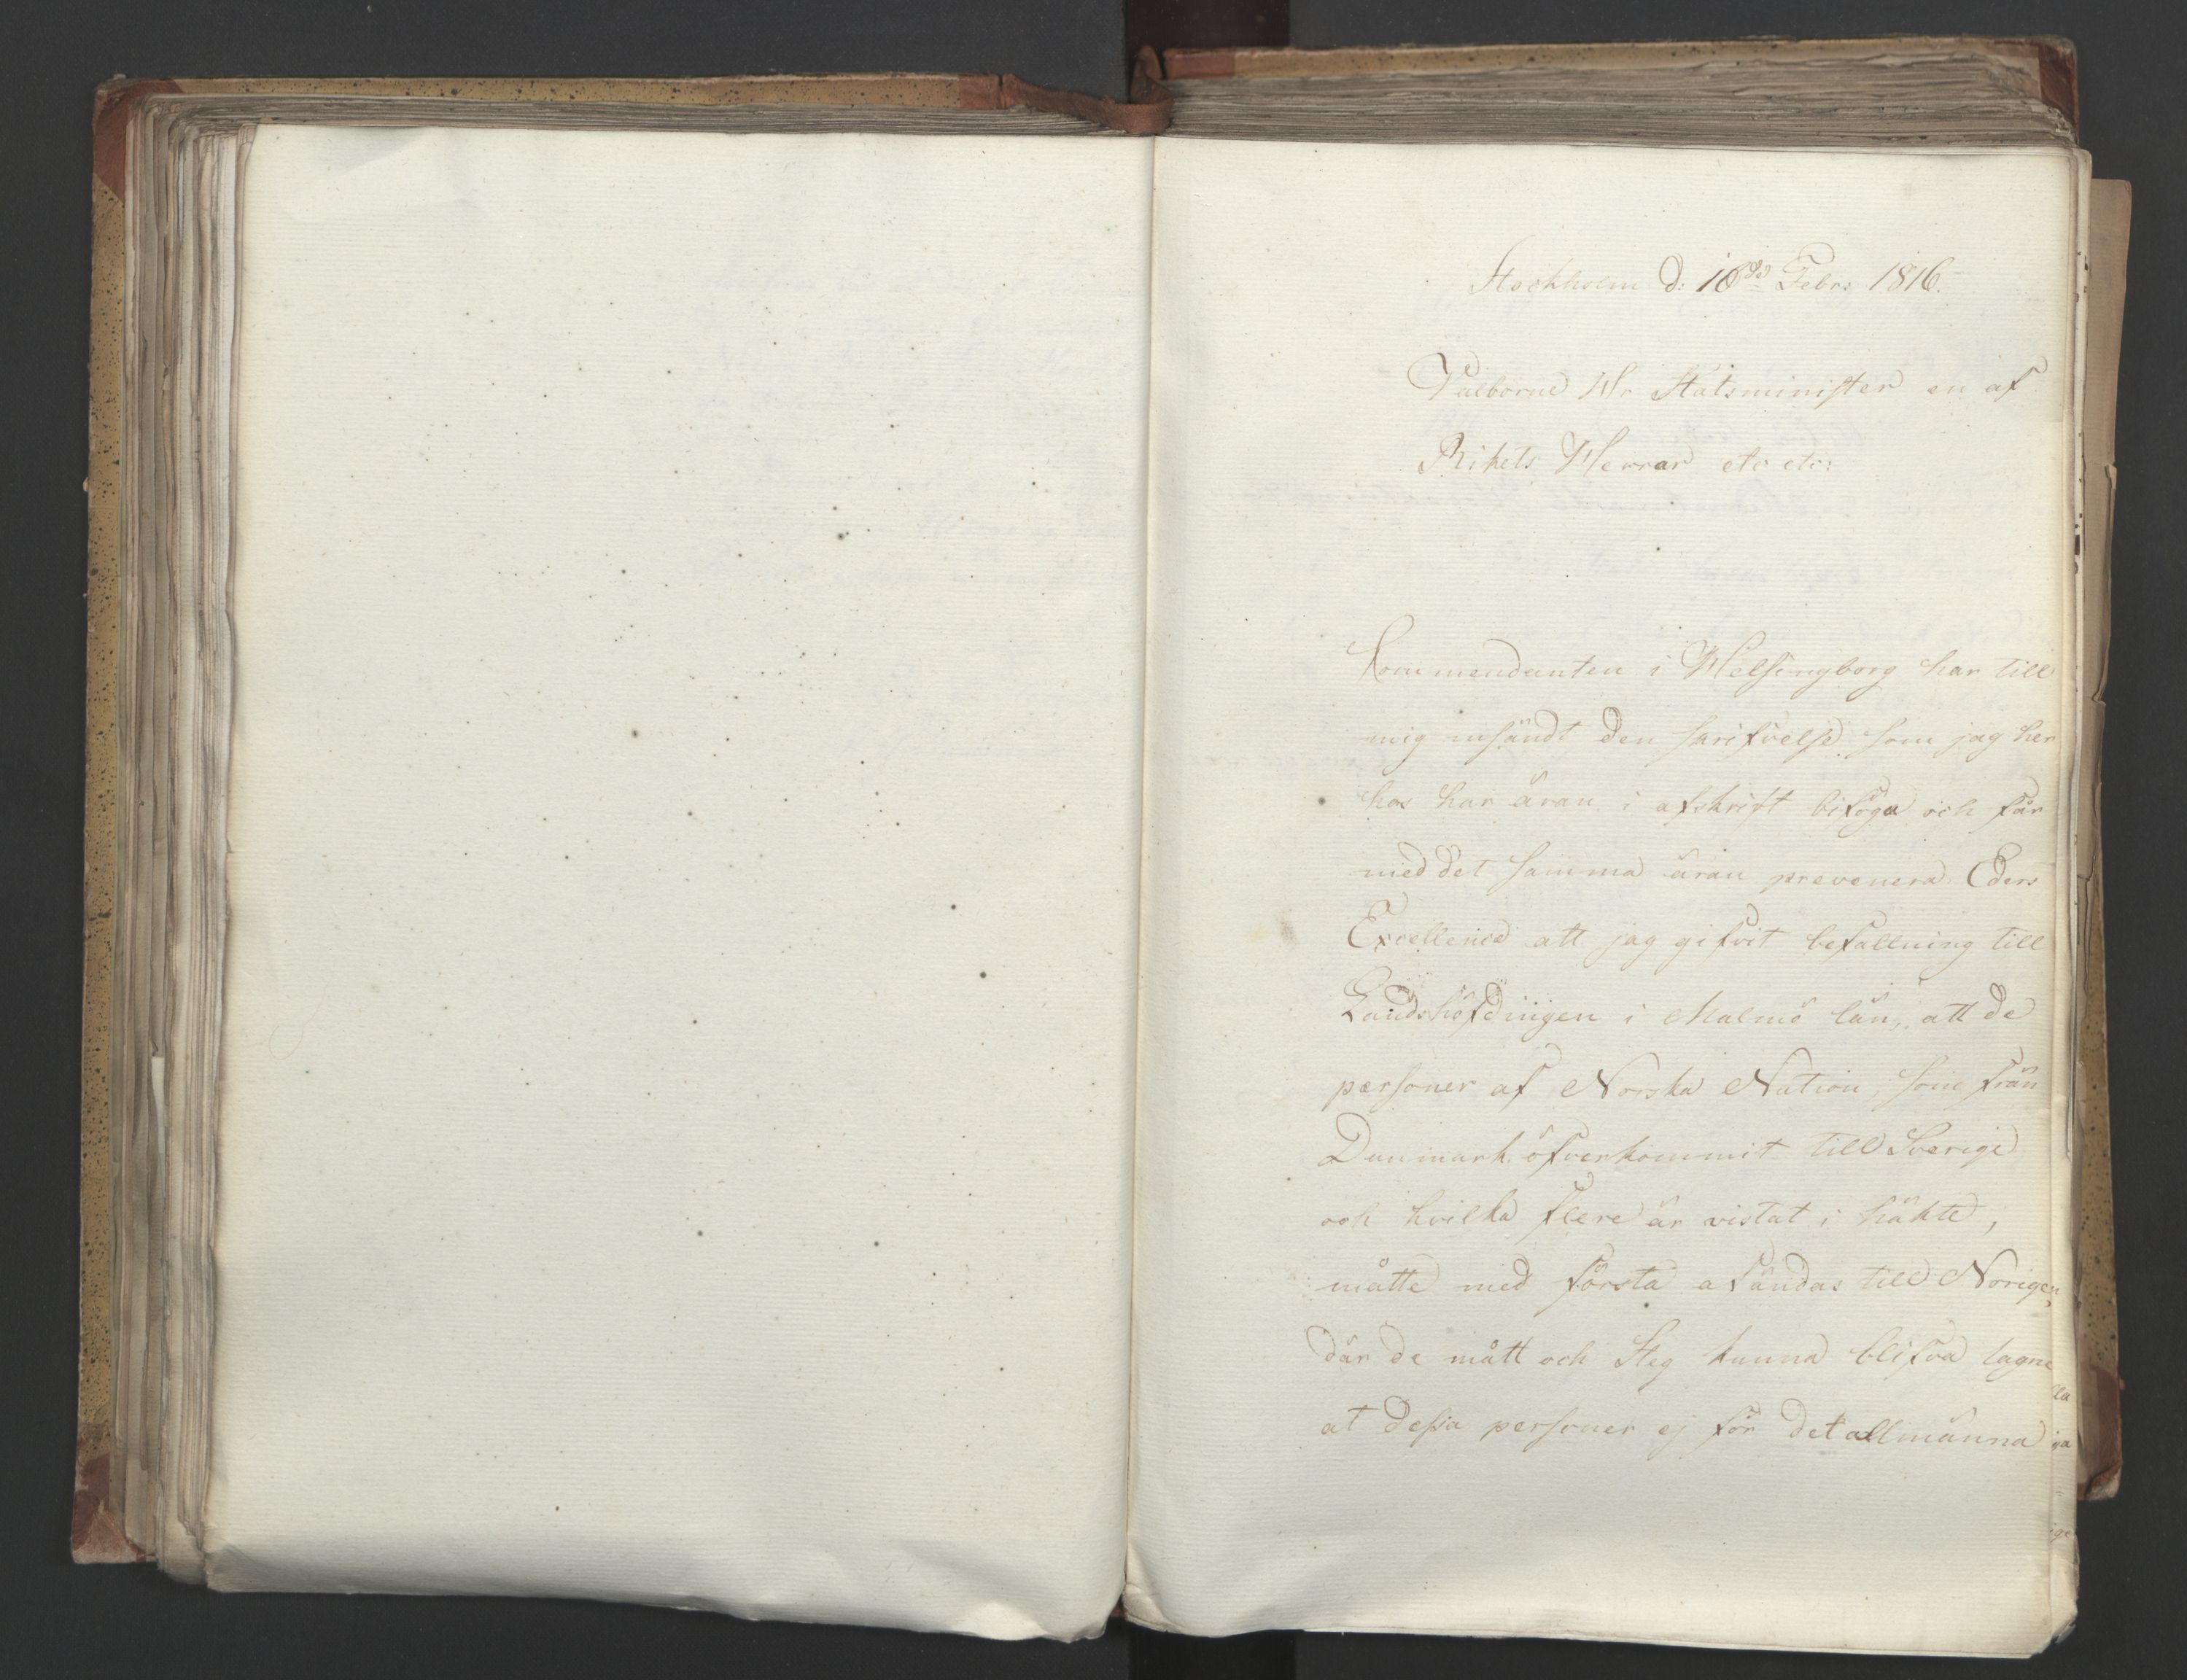 Stockholm d: 16de Febr: 1816.
Välborne Hr Statsminister en af
Rikets Herrar etc etc:
Kommendanten i Helsingborg har till
mig insändt den skrifvelse som jag här
hos har äran i afskrift bifoga och får
med det samma äran prevenera Eders
Excellence att jag gifvit befallning till
Landshöfdingen i Malmö län, att de
personer af Norska Nation, som från
Danmark öfverkommit till Sverige
och hvilka flere är vistat i häkte,
måtte med första afsändas till Norigen,
där de mått och Steg kunna blifva tagne
at dessa personer ej för det allmänna